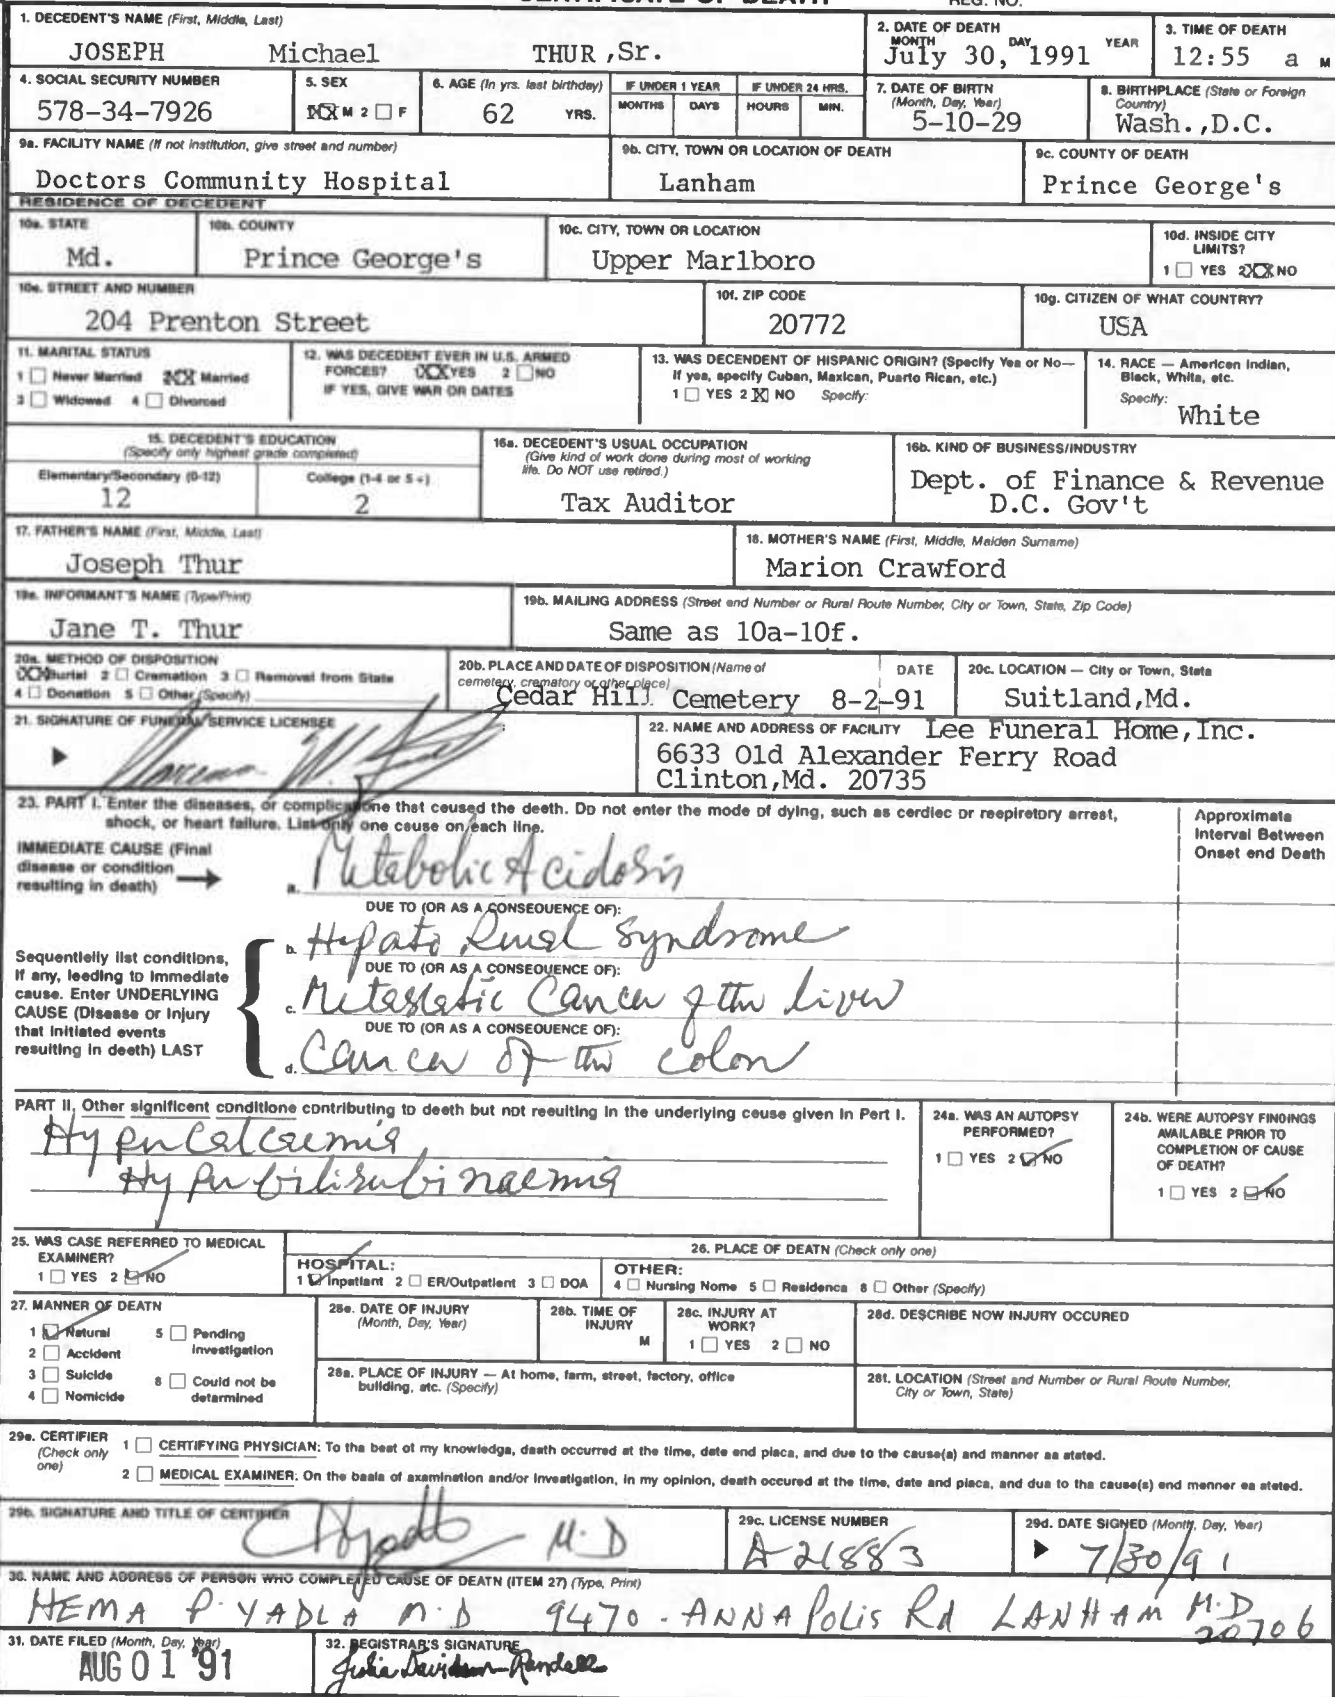 CERTIFICATE OF DEATH REG. NO.
1. DECEDENT'S NAME (First, Middle, Last)
JOSEPH Michael THUR ,Sr.
2. DATE OF DEATH
MONTH DAY YEAR
July 30, 1991
3. TIME OF DEATH
12:55 a M
4. SOCIAL SECURITY NUMBER
578-34-7926
5. SEX
1 XX M 2 ☐ F
6. AGE (In yrs. last birthday)
62 YRS.
IF UNDER 1 YEAR
MONTHS DAYS
IF UNDER 24 HRS.
HOURS MIN.
7. DATE OF BIRTH
(Month, Day, Year)
5-10-29
8. BIRTHPLACE (State or Foreign
Country)
Wash.,D.C.
9a. FACILITY NAME (If not institution, give street and number)
Doctors Community Hospital
9b. CITY, TOWN OR LOCATION OF DEATH
Lanham
9c. COUNTY OF DEATH
Prince George's
RESIDENCE OF DECEDENT
10a. STATE
Md.
10b. COUNTY
Prince George's
10c. CITY, TOWN OR LOCATION
Upper Marlboro
10d. INSIDE CITY
LIMITS?
1 ☐ YES 2 XX NO
10e. STREET AND NUMBER
204 Prenton Street
10f. ZIP CODE
20772
10g. CITIZEN OF WHAT COUNTRY?
USA
11. MARITAL STATUS
1 ☐ Never Married 2 XX Married
3 ☐ Widowed 4 ☐ Divorced
12. WAS DECEDENT EVER IN U.S. ARMED
FORCES? 1 XX YES 2 ☐ NO
IF YES, GIVE WAR OR DATES
13. WAS DECENDENT OF HISPANIC ORIGIN? (Specify Yes or No—
If yes, specify Cuban, Mexican, Puerto Rican, etc.)
1 ☐ YES 2 X NO Specify:
14. RACE — American Indian,
Black, White, etc.
Specify:
White
15. DECEDENT'S EDUCATION
(Specify only highest grade completed)
Elementary/Secondary (0-12)
12
College (1-4 or 5+)
2
16a. DECEDENT'S USUAL OCCUPATION
(Give kind of work done during most of working
life. Do NOT use retired.)
Tax Auditor
16b. KIND OF BUSINESS/INDUSTRY
Dept. of Finance & Revenue
D.C. Gov't
17. FATHER'S NAME (First, Middle, Last)
Joseph Thur
18. MOTHER'S NAME (First, Middle, Maiden Surname)
Marion Crawford
19a. INFORMANT'S NAME (Type/Print)
Jane T. Thur
19b. MAILING ADDRESS (Street and Number or Rural Route Number, City or Town, State, Zip Code)
Same as 10a-10f.
20a. METHOD OF DISPOSITION
1 XX Burial 2 ☐ Cremation 3 ☐ Removal from State
4 ☐ Donation 5 ☐ Other (Specify)
20b. PLACE AND DATE OF DISPOSITION (Name of
cemetery, crematory or other place) DATE
Cedar Hill Cemetery 8-2-91
20c. LOCATION — City or Town, State
Suitland,Md.
21. SIGNATURE OF FUNERAL SERVICE LICENSEE
22. NAME AND ADDRESS OF FACILITY Lee Funeral Home,Inc.
6633 Old Alexander Ferry Road
Clinton,Md. 20735
23. PART I. Enter the diseases, or complications that caused the death. Do not enter the mode of dying, such as cardiac or respiratory arrest,
shock, or heart failure. List only one cause on each line.
Approximate
Interval Between
Onset and Death
IMMEDIATE CAUSE (Final
disease or condition
resulting in death)
a. Metabolic Acidosis
DUE TO (OR AS A CONSEQUENCE OF):
b. Hepato Renal Syndrome
DUE TO (OR AS A CONSEQUENCE OF):
c. Metastatic Cancer of the liver
DUE TO (OR AS A CONSEQUENCE OF):
d. Cancer of the colon
Sequentially list conditions,
if any, leading to immediate
cause. Enter UNDERLYING
CAUSE (Disease or injury
that initiated events
resulting in death) LAST
PART II. Other significant conditions contributing to death but not resulting in the underlying cause given in Part I.
Hypercalcaemia
Hyperbilirubinaemia
24a. WAS AN AUTOPSY
PERFORMED?
1 ☐ YES 2 ☑ NO
24b. WERE AUTOPSY FINDINGS
AVAILABLE PRIOR TO
COMPLETION OF CAUSE
OF DEATH?
1 ☐ YES 2 ☑ NO
25. WAS CASE REFERRED TO MEDICAL
EXAMINER?
1 ☐ YES 2 ☑ NO
26. PLACE OF DEATH (Check only one)
HOSPITAL:
1 ☑ Inpatient 2 ☐ ER/Outpatient 3 ☐ DOA
OTHER:
4 ☐ Nursing Home 5 ☐ Residence 6 ☐ Other (Specify)
27. MANNER OF DEATH
1 ☑ Natural 5 ☐ Pending
Investigation
2 ☐ Accident
3 ☐ Suicide 6 ☐ Could not be
determined
4 ☐ Homicide
28a. DATE OF INJURY
(Month, Day, Year)
28b. TIME OF
INJURY
M
28c. INJURY AT
WORK?
1 ☐ YES 2 ☐ NO
28d. DESCRIBE HOW INJURY OCCURED
28e. PLACE OF INJURY — At home, farm, street, factory, office
building, etc. (Specify)
28f. LOCATION (Street and Number or Rural Route Number,
City or Town, State)
29a. CERTIFIER
(Check only
one)
1 ☐ CERTIFYING PHYSICIAN: To the best of my knowledge, death occurred at the time, date and place, and due to the cause(s) and manner as stated.
2 ☐ MEDICAL EXAMINER: On the basis of examination and/or investigation, in my opinion, death occured at the time, date and place, and due to the cause(s) and manner as stated.
29b. SIGNATURE AND TITLE OF CERTIFIER
M.D
29c. LICENSE NUMBER
A 21883
29d. DATE SIGNED (Month, Day, Year)
7/30/91
30. NAME AND ADDRESS OF PERSON WHO COMPLETED CAUSE OF DEATH (ITEM 27) (Type, Print)
HEMA P. YADLA M.D 9470-ANNAPOLIS Rd LANHAM M.D
20706
31. DATE FILED (Month, Day, Year)
AUG 01 '91
32. REGISTRAR'S SIGNATURE
Julia Davidson-Randall